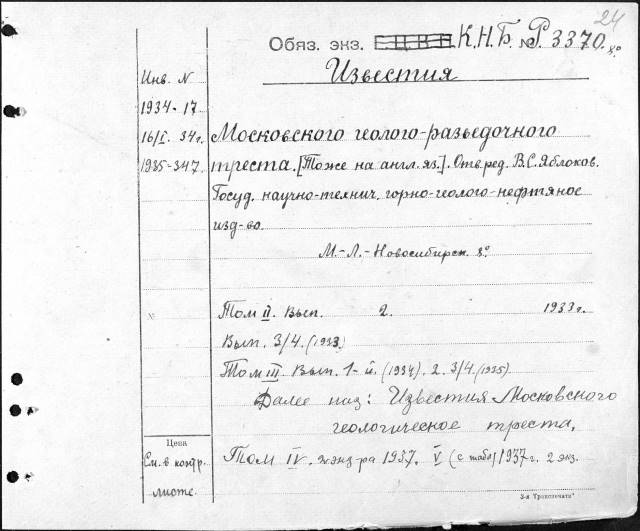 24
Обяз. экз. Е.Ц.К.П. К.Н.Б. № Р.3370. 8°
Известия
Инв. N
1934-17
16/I. 34г.
1935-347.
Московского геолого-разведочного
треста. [Тоже на англ. яз.]. Отв. ред. В.С. Яблоков.
Госуд. научно-технич. горно-геолого-нефтяное
изд-во.
М.-Л.-Новосибирск. 8°
№
Том II. Вып. 2. 1933 г.
Вып. 3/4. (1933)
Том III. Вып. 1-й. (1934). 2. 3/4. (1935)
Далее наз: Известия Московского
геологическое треста.
Цена
См. в конфр.
листе.
Том IV. 2 экз-ра 1937. V (с табл) 1937 г. 2 экз.
3-я "Транспечати"